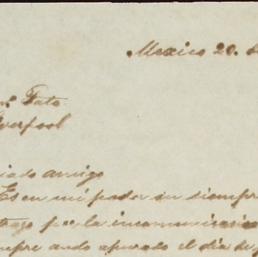 Mexico 20.
Tato
verpool
iado amigo
Es en mi poder su siempre
por la incomunicacion
mpre ando apurado el dia de